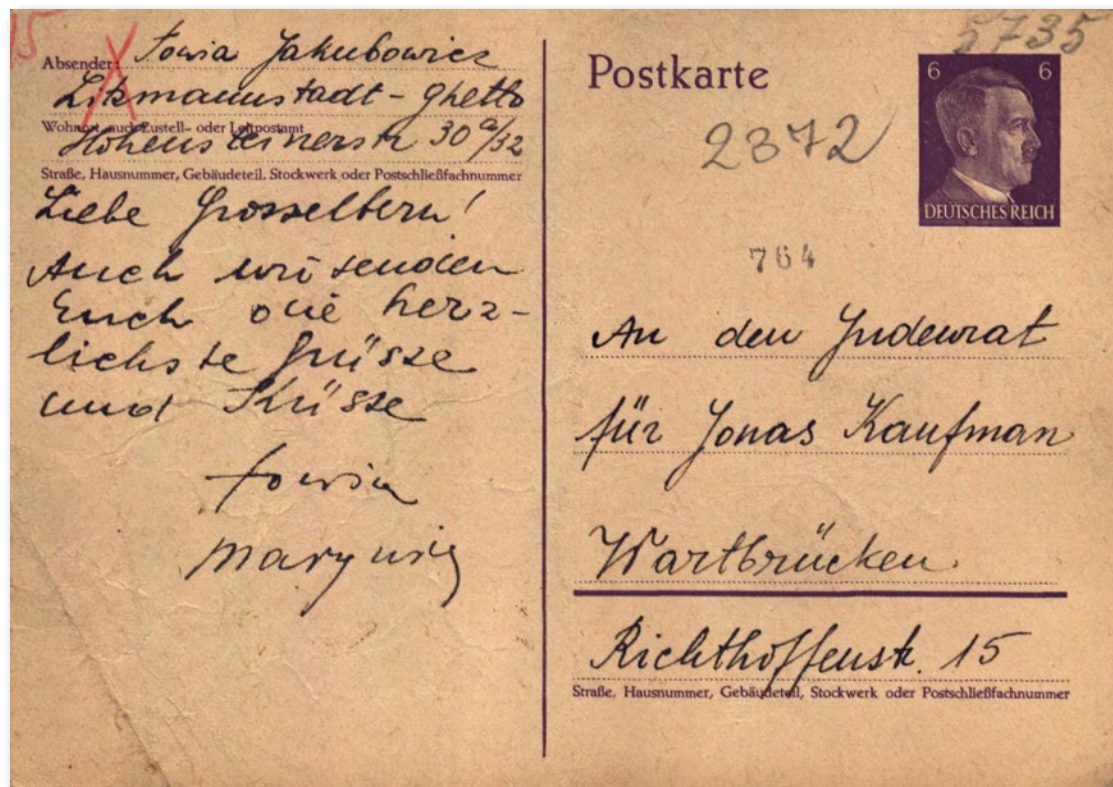 15
Absender: Towia Jakubowicz
Litzmannstadt-Ghetto
Wohnort, auch Zustell- oder Leitpostamt
Hohensteinerstr 30a/32
Straße, Hausnummer, Gebäudeteil, Stockwerk oder Postschließfachnummer
Liebe Grosseltern!
Auch wir senden
Euch die herz-
lichste Grüsse
und Küsse
Towia
Postkarte
5735
6 6
DEUTSCHES REICH
2372
764
An den Judenrat
für Jonas Kaufman
Wartbrücken
Richthoffenstr. 15
Straße, Hausnummer, Gebäudeteil, Stockwerk oder Postschließfachnummer